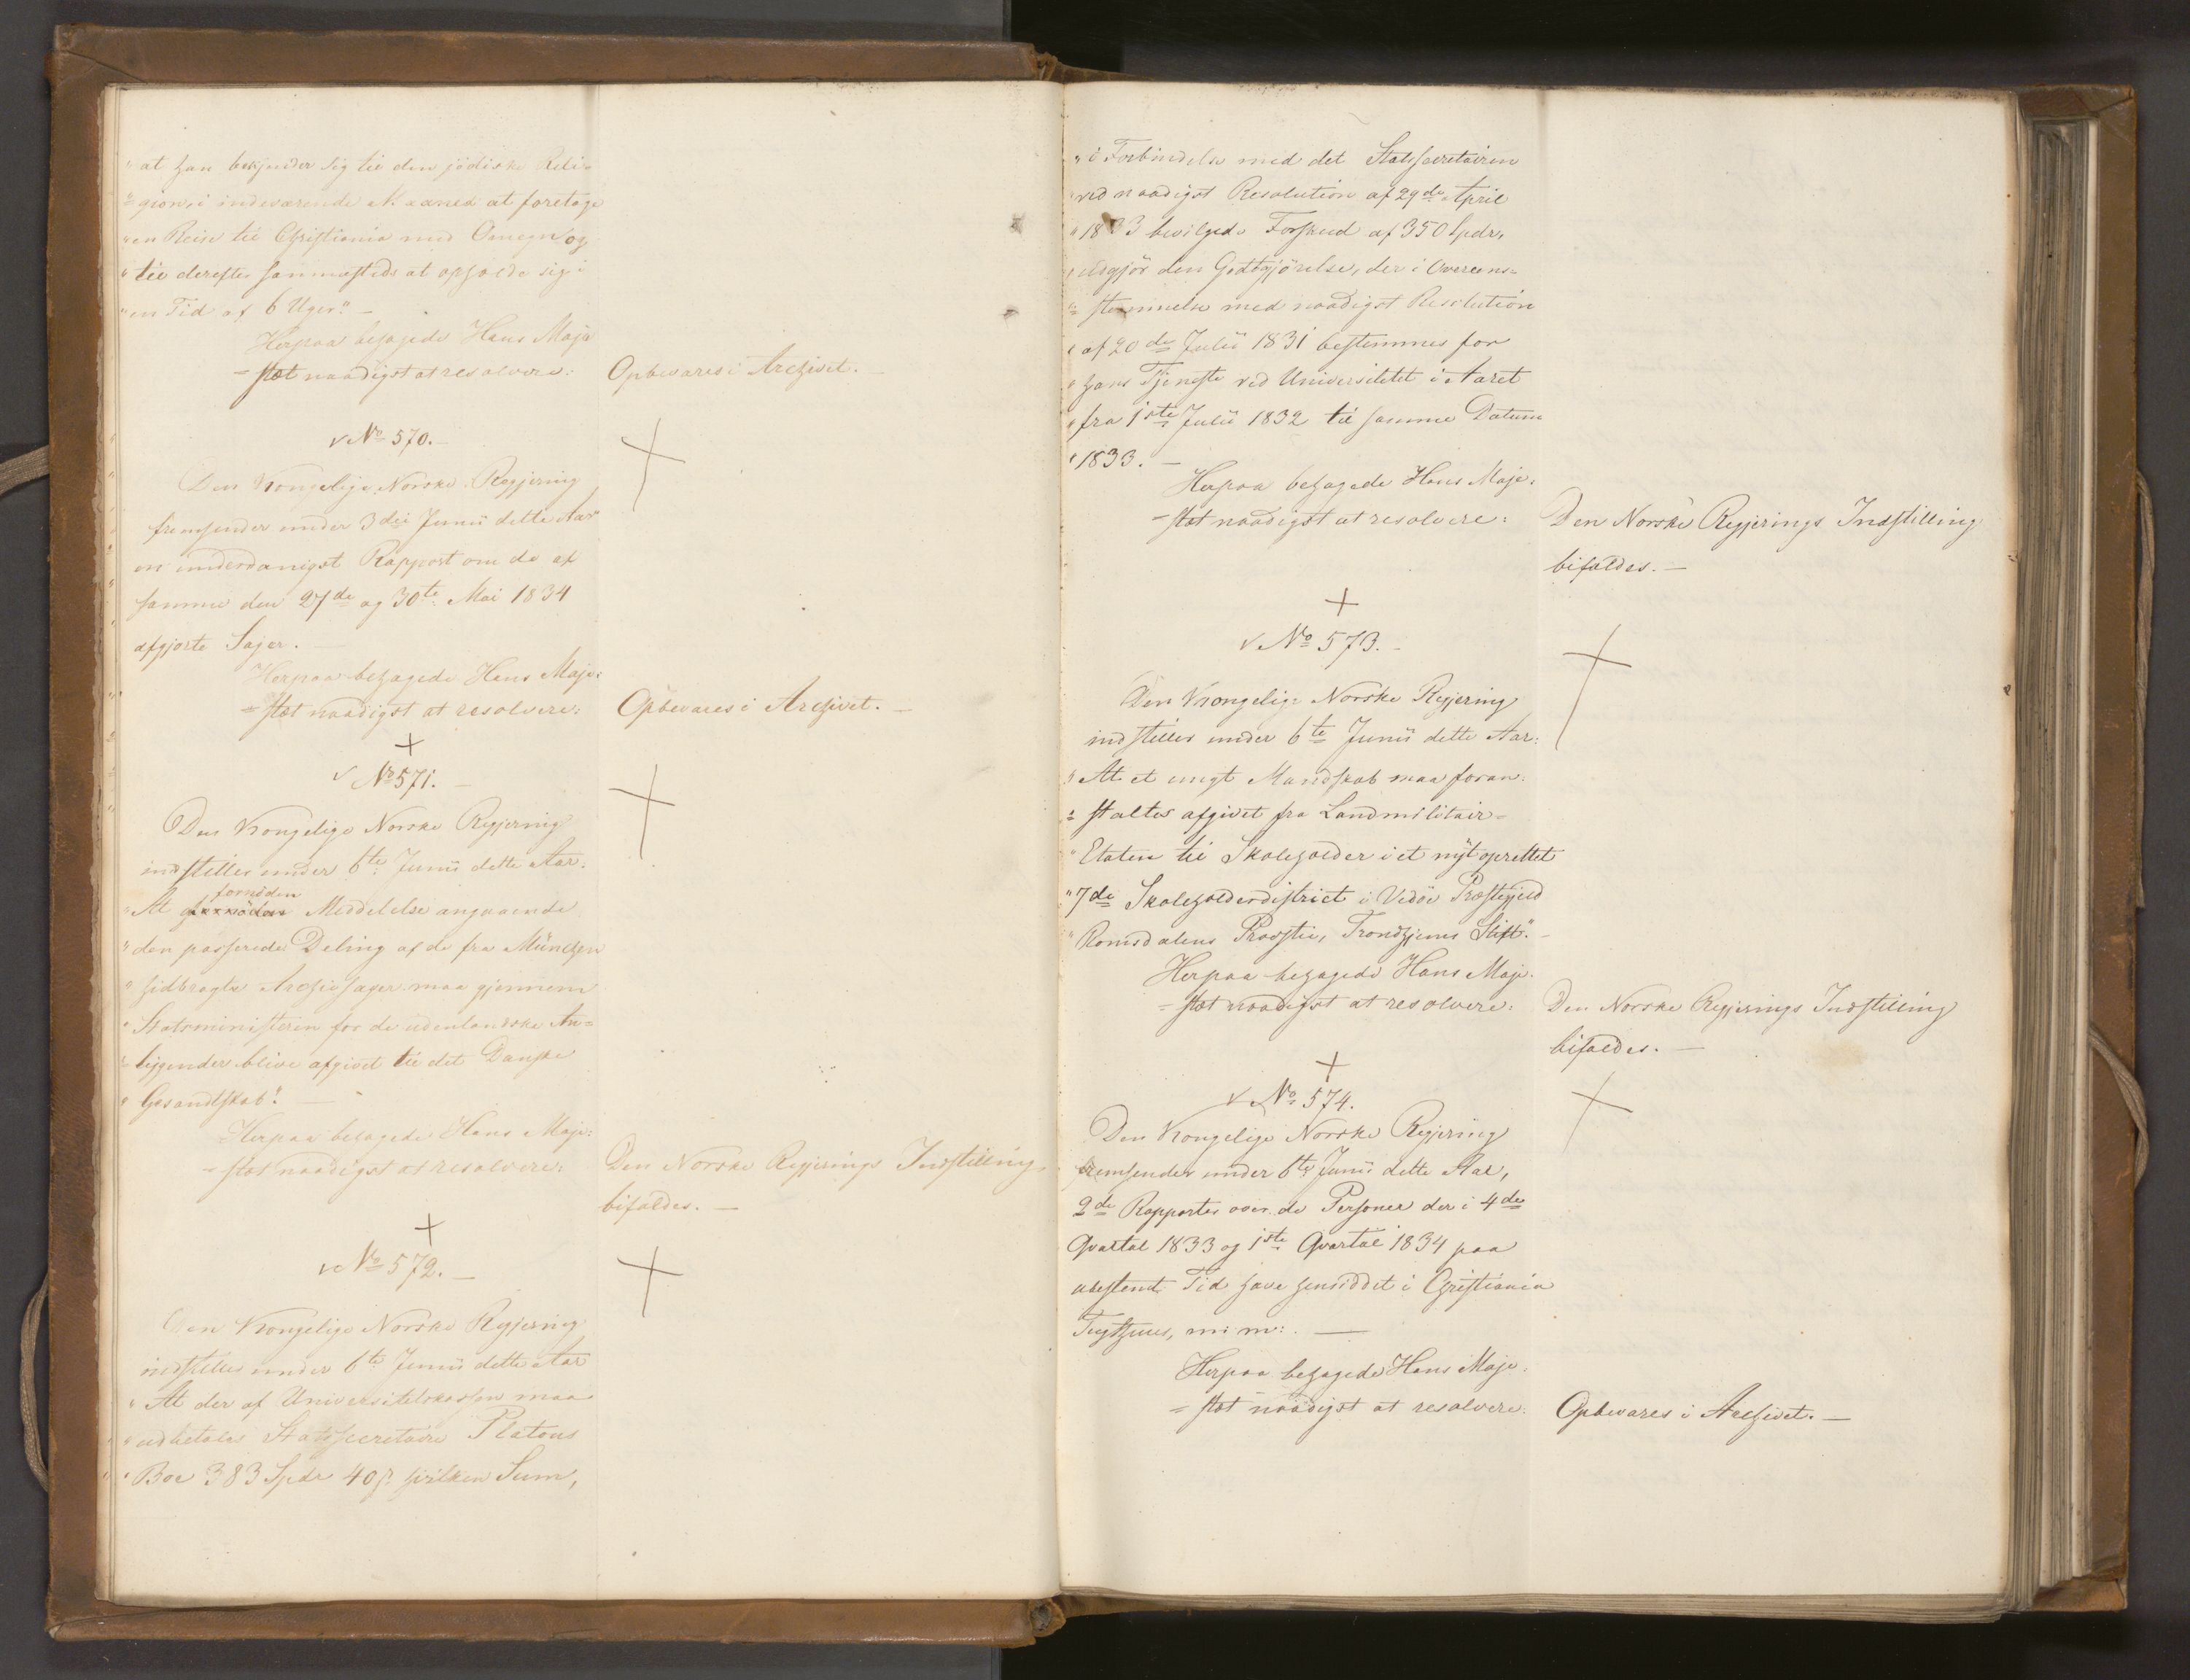 "at han bekjender sig til den jödiske Reli-
"gion, i indeværende Maaned at foretage
"en Reise til Christiania med Omegn og
"til derefter sammesteds at opholde sig i
"en Tid af 6 Uger." —
Herpaa behagede Hans Maje-
=stæt naadigst at resolvere:
Opbevares i Archivet. —
No 570.
Den Kongelige Norske Regjering
fremsender under 3die Junii dette Aar
en underdanigst Rapport om de af
samme den 27de og 30te Mai 1834
afgjorte Sager. —
Herpaa behagede Hans Maje-
=stæt naadigst at resolvere:
Opbevares i Archivet. —
No 571. —
Den Kongelige Norske Regjering
indstiller under 6te Junii dette Aar:
fornöden
"At Meddelelse angaaende
"den passerede Deling af de fra München
"hidbragte Archivsager maa gjennem
"Statsministeren for de udenlandske An=
"liggender blive afgivet til det Danske
"Gesandtskab". —
Herpaa behagede Hans Maje:
=stæt naadigst at resolvere:
Den Norske Regjerings Indstilling
bifaldes. —
No 572. —
Den Kongelige Norske Regjering
indstiller under 6te Junii dette Aar
"At der af Universitetskassen maa
"udbetales Statssecretaire Platous
"Boe 383 Spdr 40 ß hvilken Sum,
"i Forbindelse med det Statssecretairen
"ved naadigst Resolution af 29de April
"1833 bevilgede Forskud af 350 Spdr,
"udgjör den Godtgjörelse, der i Overeens=
"stemmelse med naadigst Resolution
"af 20de Julii 1831 bestemmes for
"hans Tjeneste ved Universitetet i Aaret
"fra 1ste Julii 1832 til samme Datum
"1833. —
Herpaa behagede Hans Maje:
=stæt naadigst at resolvere:
Den Norske Regjerings Indstilling
bifaldes. —
No 573. —
Den Kongelige Norske Regjering
indstiller under 6te Junii dette Aar:
"At et ungt Mandskab maa foran:
"staltes afgivet fra Landmilitair=
"Etaten til Skoleholder i et nyt oprettet
"7de Skoleholderdistrict i Vedöe Præstegjeld
"Romsdalens Provstie, Trondhjems Stift". —
Herpaa behagede Hans Maje:
=stæt naadigst at resolvere:
Den Norske Regjerings Indstilling
bifaldes. —
No 574.
Den Kongelige Norske Regjering
fremsender under 6te Junii dette Aar,
2de Rapporter over de Personer der i 4de
Qvartal 1833 og 1ste Qvartal 1834 paa
ubestemt Tid have hensiddet i Christiania
Tugthuus, m: m: —
Herpaa behagede Hans Maje:
=stæt naadigst at resolvere:
Opbevares i Archivet. —